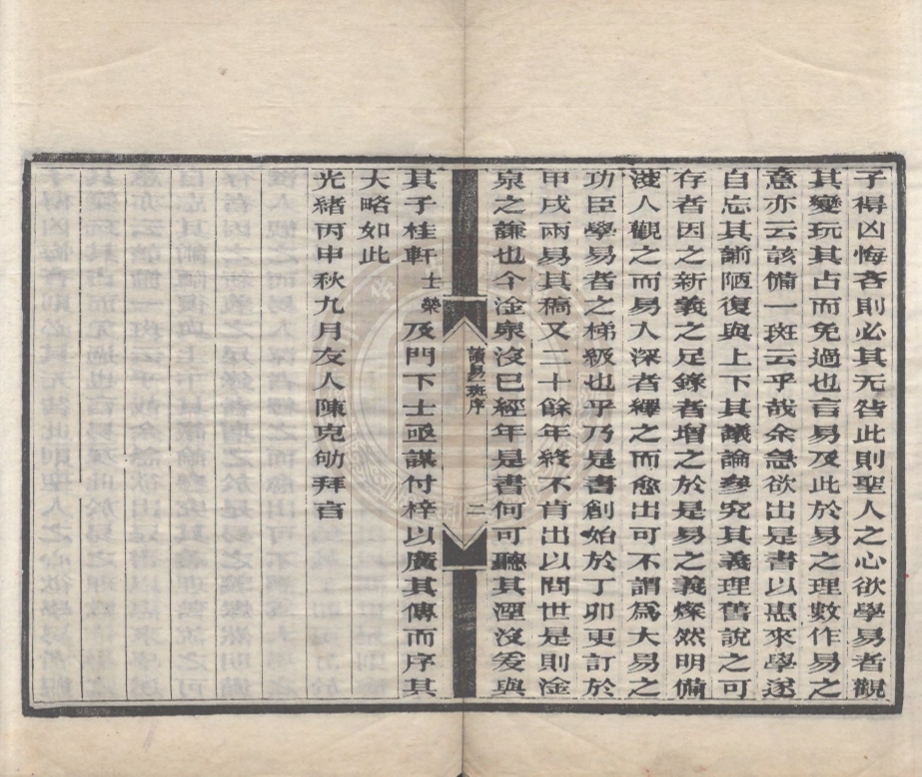 子得凶悔吝則必其无咎此則聖人之心欲學易者觀
其變玩其占而免過也言易及此於易之理數作易之
意亦云該備一斑云乎哉余急欲出是書以惠來學遂
自忘其謭陋復與上下其議論參究其義理舊說之可
存者因之新義之足錄者增之於是易之義燦然明備
淺人觀之而易入深者繹之而愈出可不謂為大易之
功臣學易者之梯級也乎乃是書創始於丁卯更訂於
甲戌兩易其稿又二十餘年終不肯出以問世是則淦
泉之謙也今淦泉沒已經年是書何可聽其湮沒爰與
讀易一班序
二
其子桂軒士榮及門下士亟謀付梓以廣其傳而序其
大略如此
光緒丙申秋九月友人陳克劬拜言